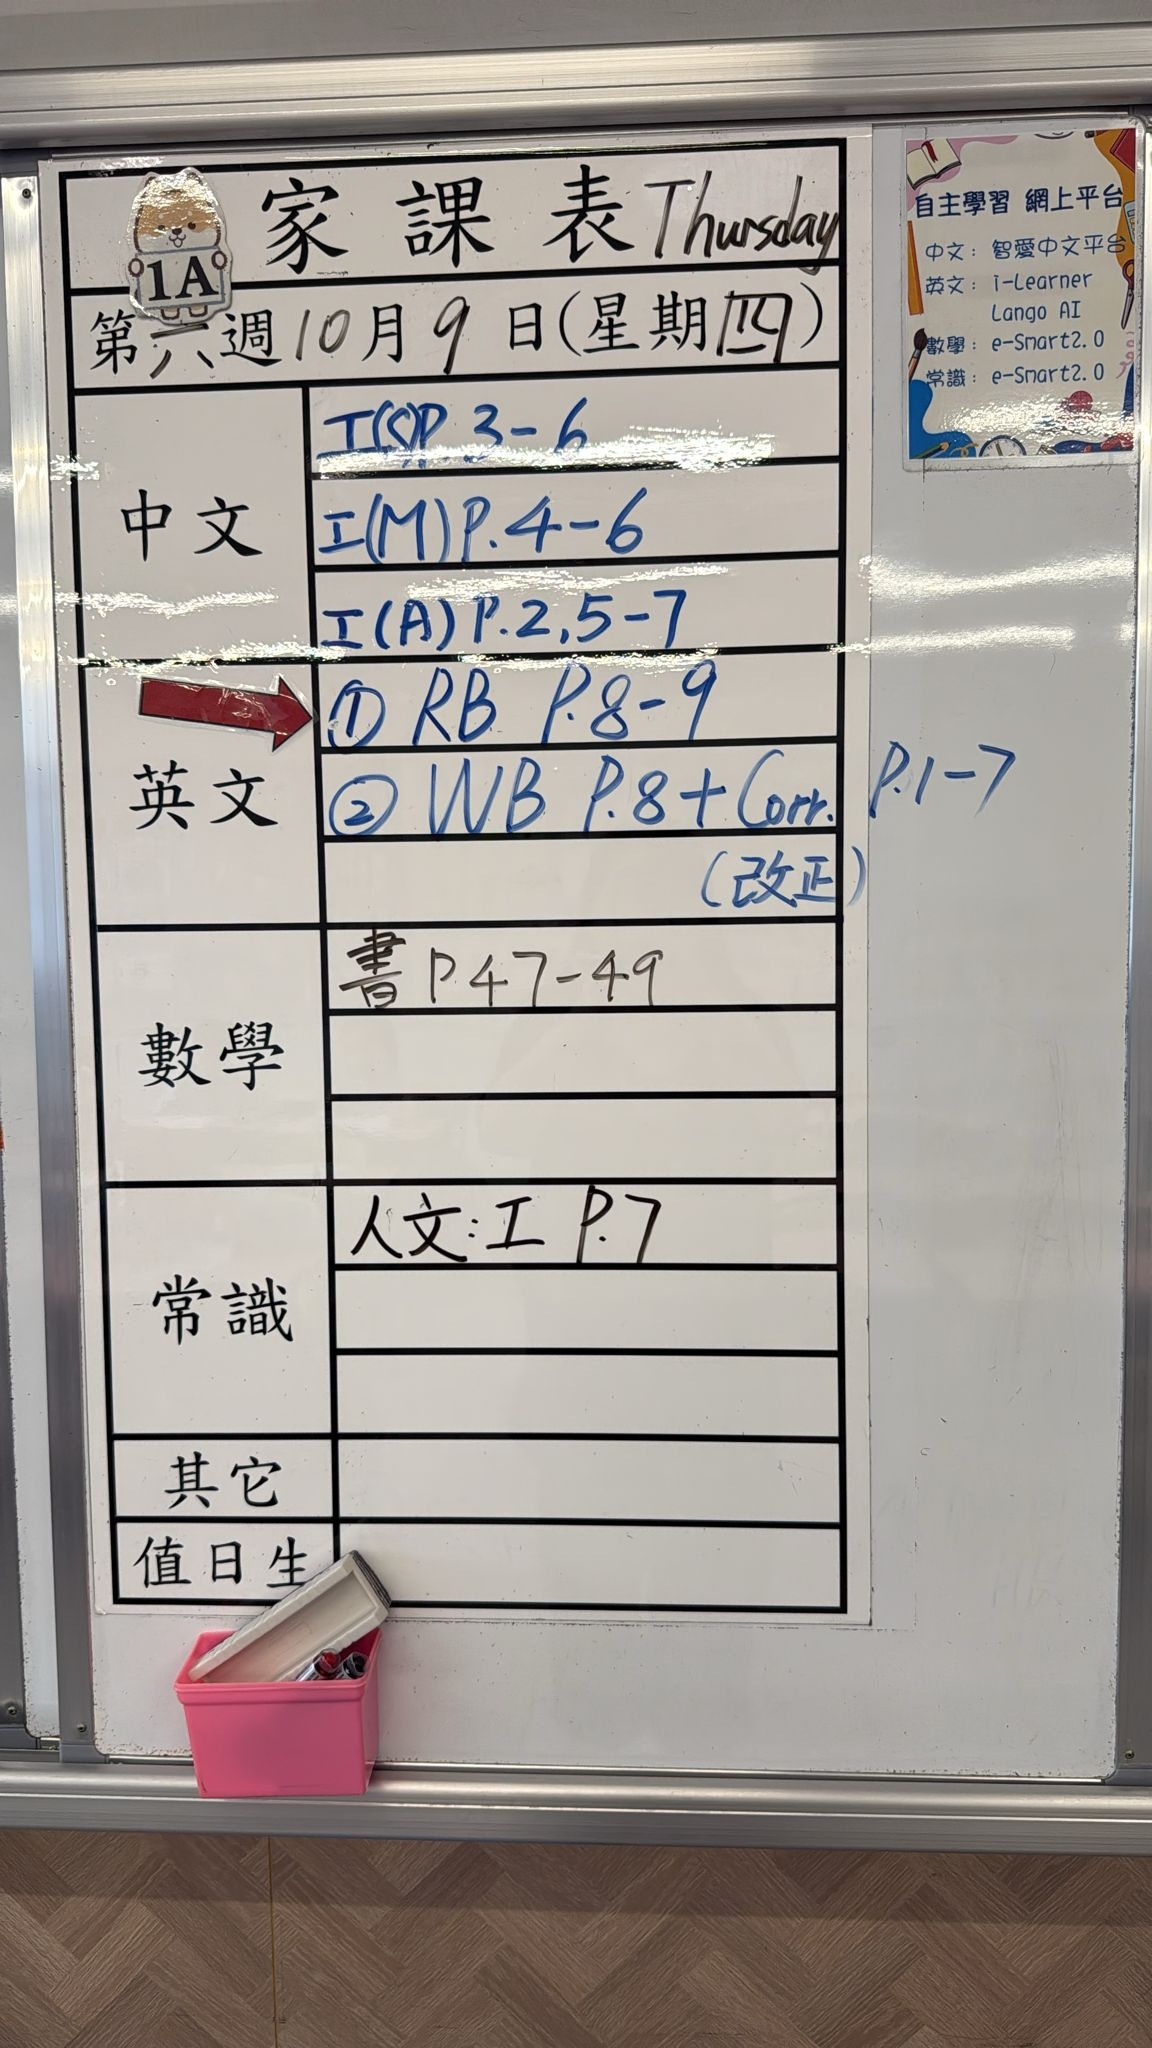 1A
家課表 Thursday
第六週10月9日(星期四)
中文
工(S)P.3-6
工(M)P.4-6
工(A)P.2,5-7
英文
① RB P.8-9
② WB P.8+Corr. P.1-7
(改正)
數學
書 P47-49
常識
人文:工 P.7
其它
值日生
自主學習 網上平台
中文: 智愛中文平台
英文: i-Learner
Lango AI
數學: e-Smart2.0
常識: e-Smart2.0